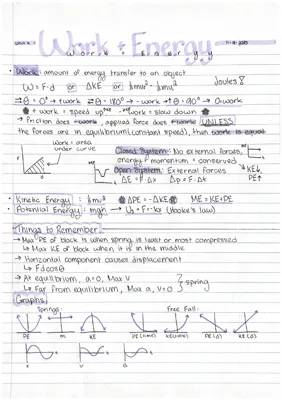 Work + Energy
• Work: amount of energy transfer to an object
W = F·d or ΔKE or ½mv² - ½mv² Joules
θ = 0° → +work θ = 180° → -work θ = 90° → 0work
+work = speed up -work = slow down
→ Friction does -work, applied force does +work UNLESS
the forces are in equilibrium (constant speed), then work is equal
Work = area under curve
F
d
Closed System: No external forces,
energy + momentum = conserved
Open System: External forces
ΔE = F·d Δp = F·Δt
↓KE &
PE↑
• Kinetic Energy: ½mv² ΔPE = -ΔKE ME = KE+PE
• Potential Energy: mgh → (Hooke's law)
Things to Remember:
→ Max PE of block is when spring is least or most compressed
↳ Max KE of block when it is in the middle
→ Horizontal component causes displacement
↳ Fdcosθ
→ At equilibrium, a=0, Max V
↳ Far from equilibrium, Max a, V=0 } spring
Graphs:
Springs: Free Fall:
PE m KE PE (time) KE(time) PE (d) KE (d)
x v a